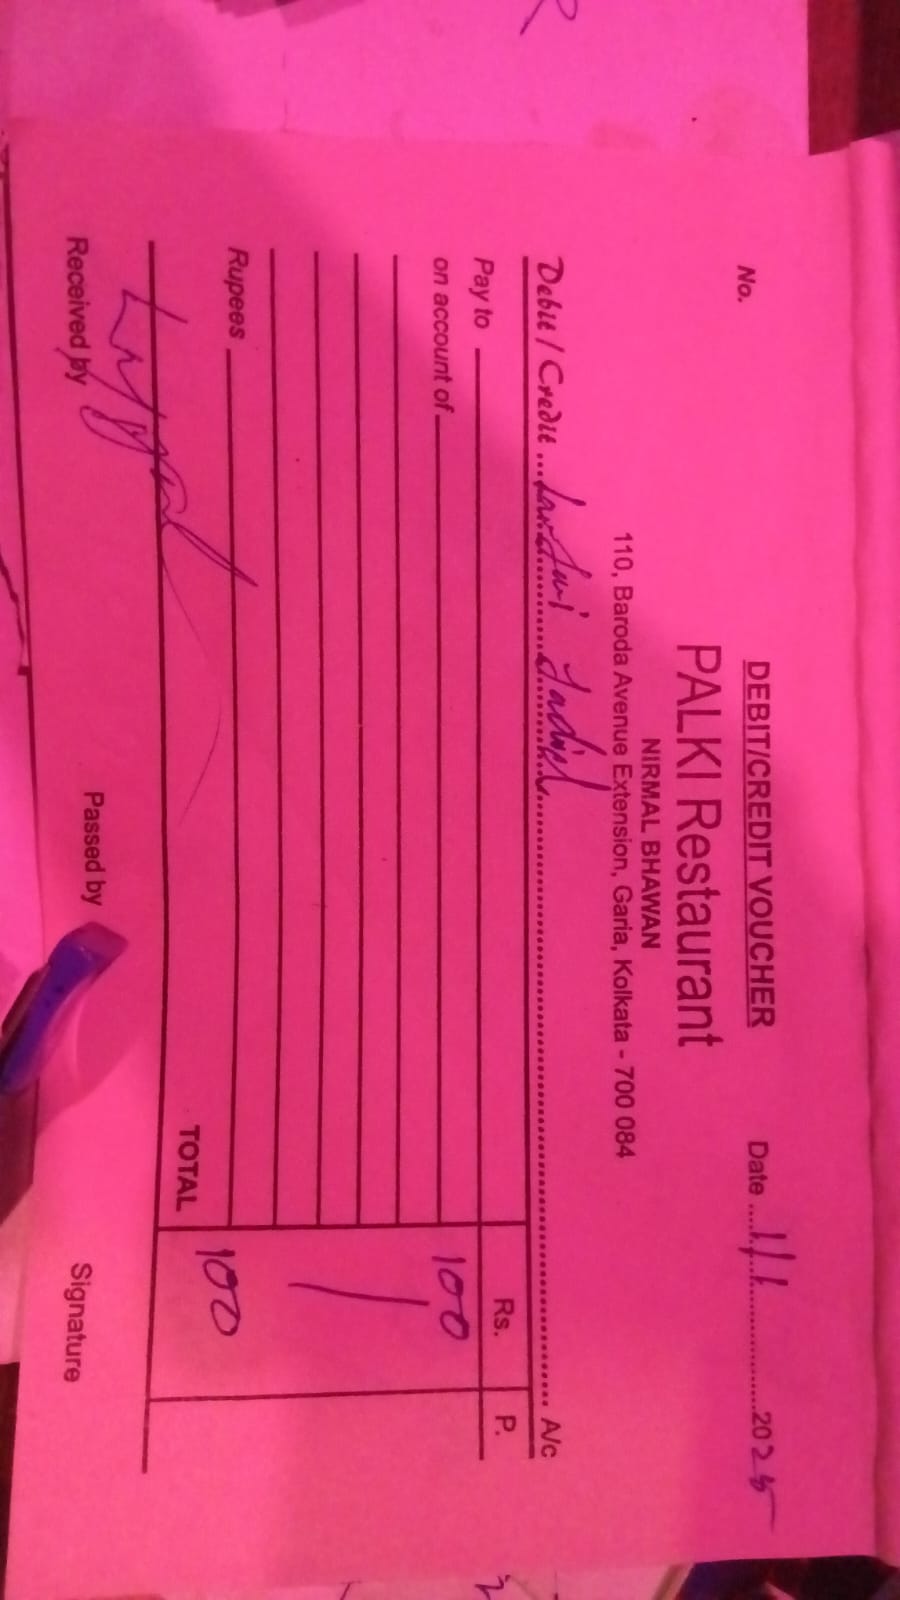 DEBIT/CREDIT VOUCHER
No.
Date ....1/1..............2025
PALKI Restaurant
NIRMAL BHAWAN
110, Baroda Avenue Extension, Garia, Kolkata - 700 084
Debit / Credit ... A/c
Pay to
Rs. P.
on account of
100
Rupees
TOTAL 100
Received by
Passed by
Signature